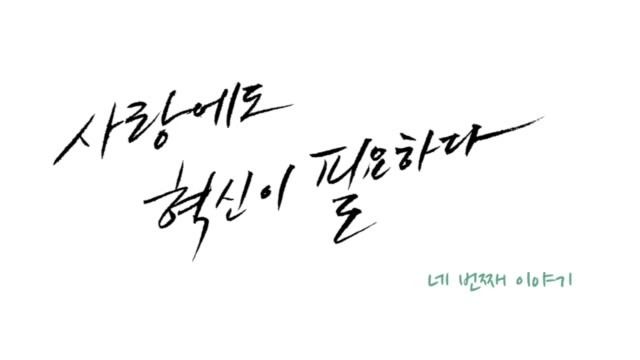 사랑에도
혁신이 필요하다
네 번째 이야기